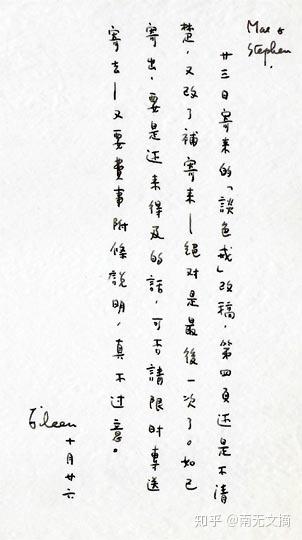 Mae &
Stephen,
廿三日寄来的「談色戒」改稿，第四頁还是不清
楚，又改了補寄来—絕对是最後一次了。如已
寄出，要是还来得及的話，可否請限时專送
寄去—又要費事附條說明，真不过意。
Eileen
十月廿六
知乎 @南无文摘